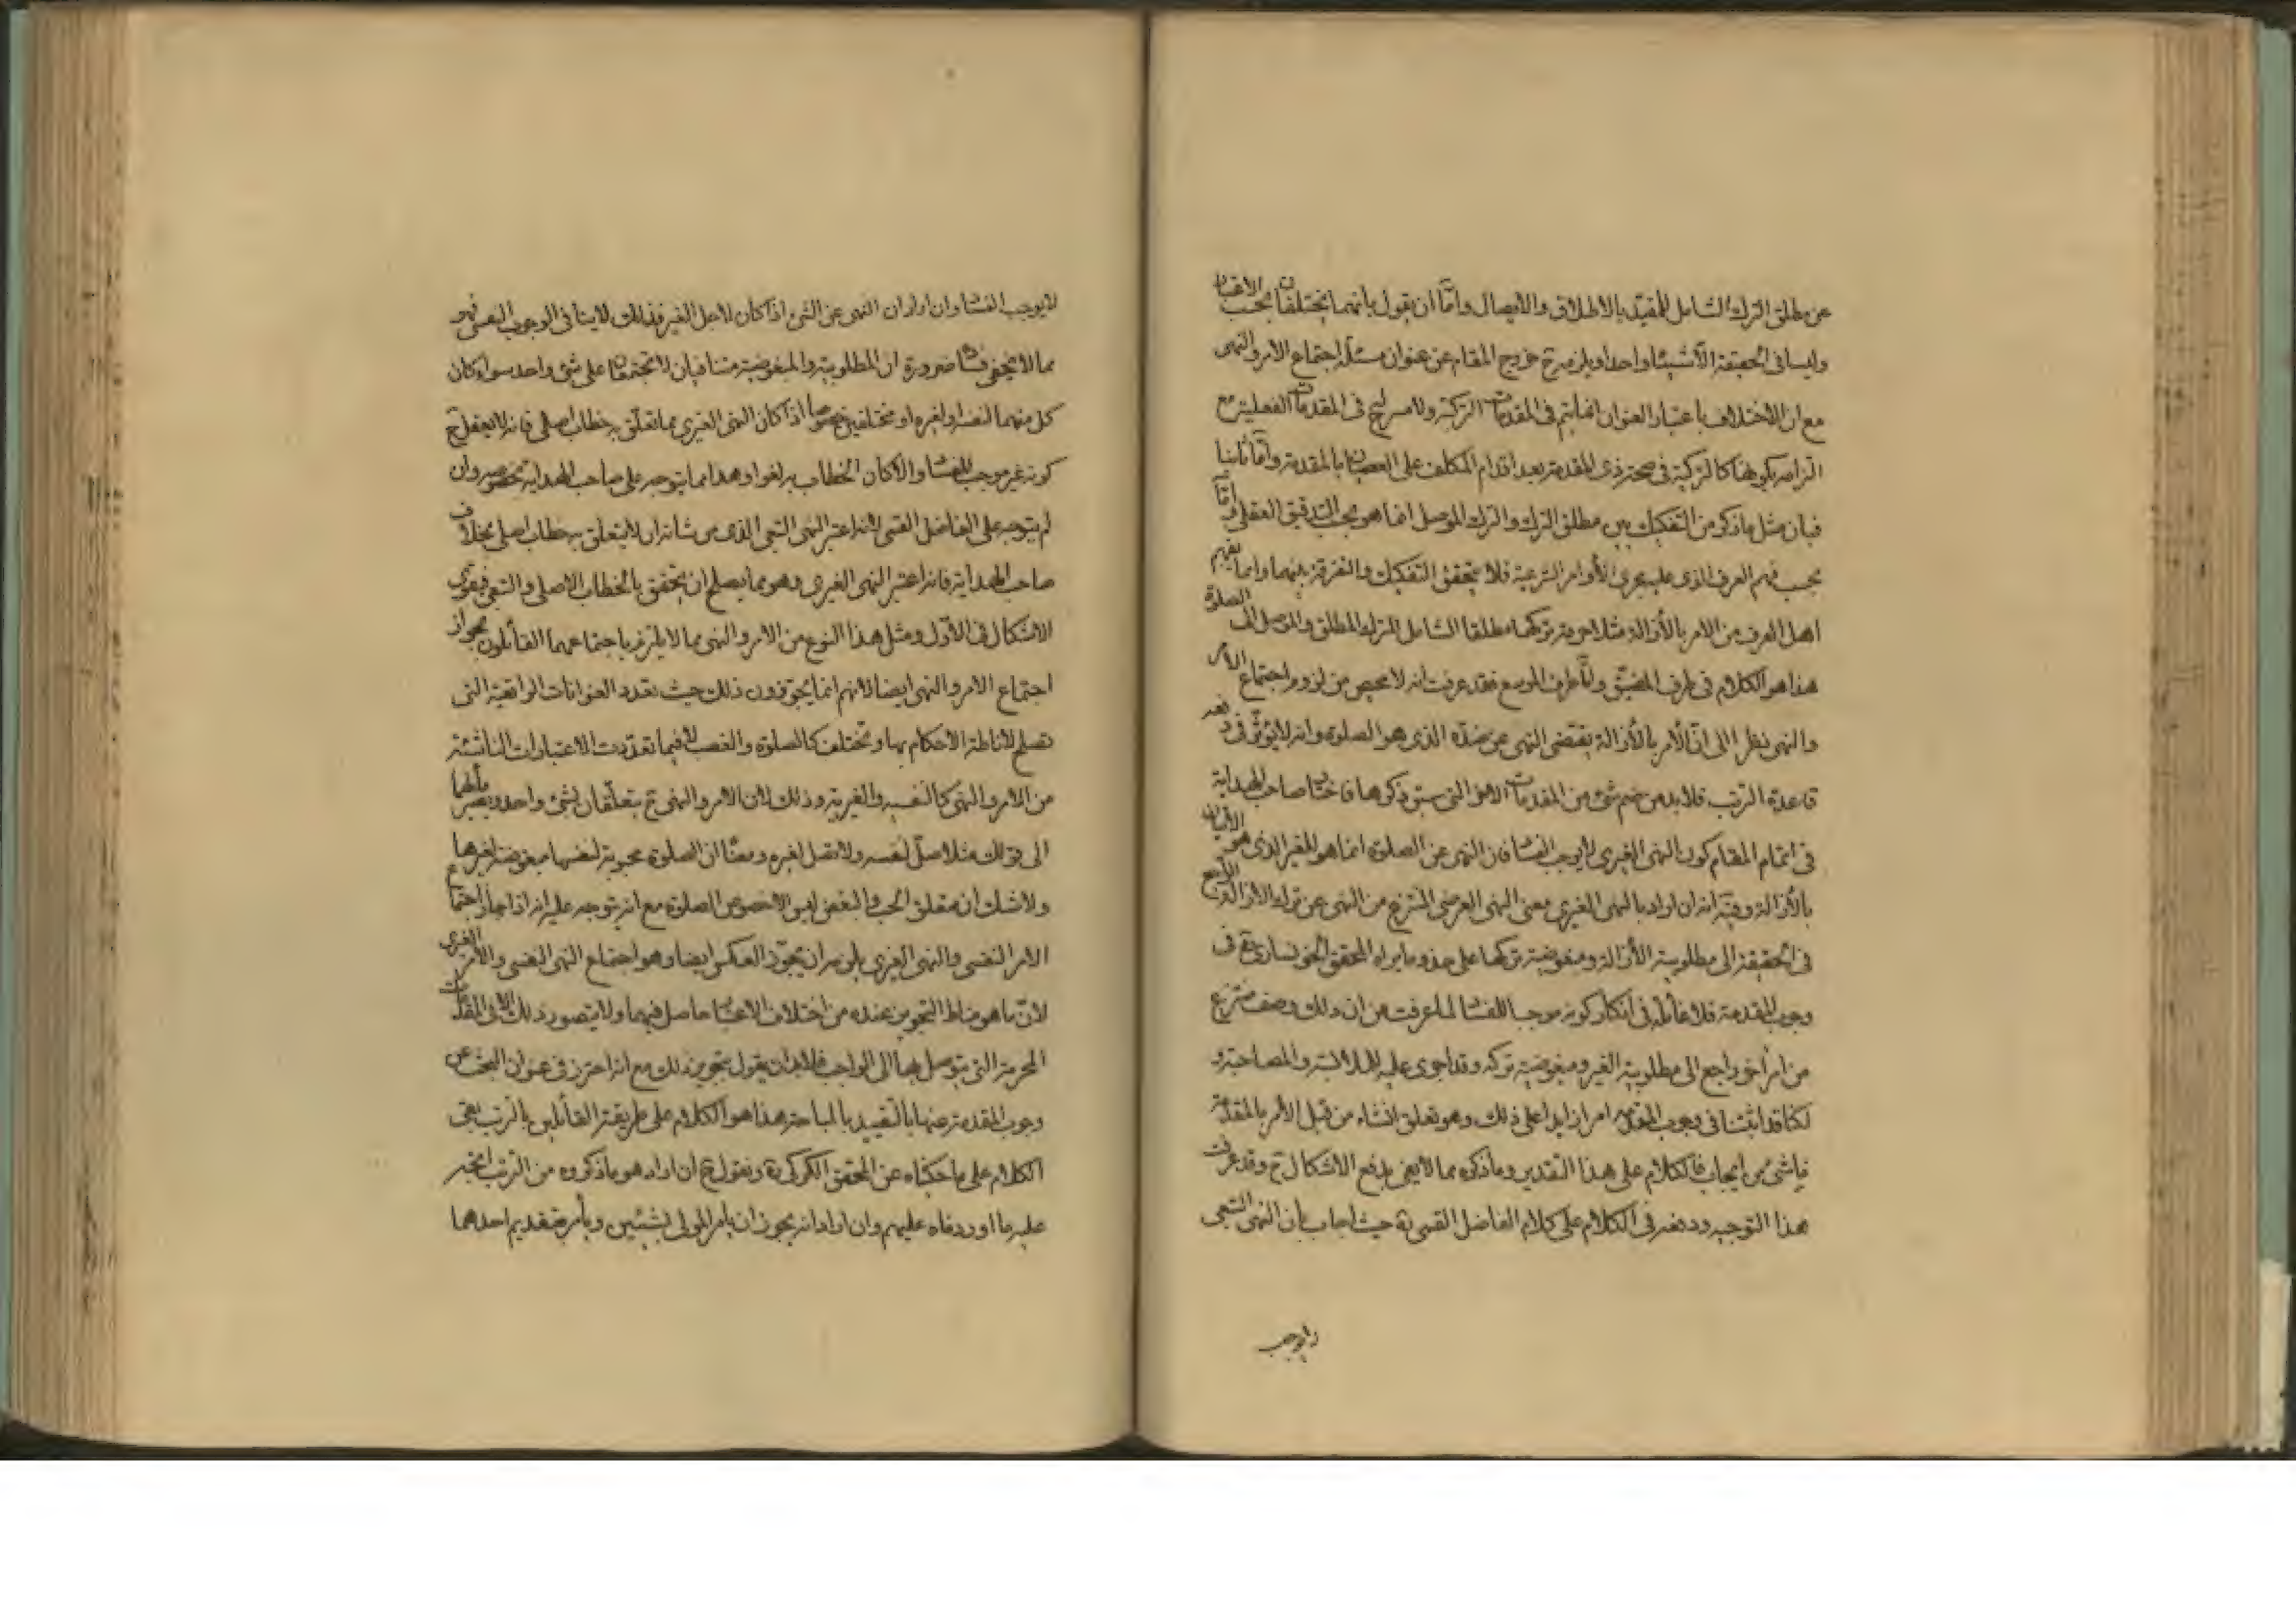 عن مطلق الترك الشامل للمقيد بالاطلاق والايصال واما ان يقول بانهما يختلفان بحسب الاعتبار
وليسا فى الحقيقة الا شيئا واحدا ويلزمه ح خروج المقام عن عنوان مسئلة اجتماع الامر والنهى
مع ان الاختلاف باعتبار العنوان انما يتم فى المقدمات التركية ولا مسرح فى المقدمات الفعلية مع
التزامه بكونها كالتركية فى صحة ذى المقدمة بعد اقدام المكلف على العصيان بالمقدمة واما ثانيا
فبان مثل ما ذكر من التفكيك بين مطلق الترك والترك الموصل انما هو بحسب التدقيق العقلى واما
بحسب فهم العرف الذى عليه جرى الأوامر الشرعية فلا يتحقق التفكيك والتفرقة بينهما وانما يفهم
اهل العرف من الامر بالأزالة مثلا حرمة تركها مطلقا الشامل للترك المطلق والموصل الى الصلوة
هذا هو الكلام فى طرف المضيق واما طرف الموسع فقد عرفت انه لا محيص من لزوم اجتماع الأمر
والنهى نظرا الى ان الأمر بالأزالة يقتضى النهى عن ضده الذى هو الصلوة وانه لا يؤثر فى دفعه
قاعدة الترتب فلا بد من ضم شئ من المقدمات الاخر التى سبق ذكرها فاختار صاحب الهداية
فى اتمام المقام كون النهى الغيرى لا يوجب الفساد فان النهى عن الصلوة انما هو للغير الذى هو الأتيان
بالأزالة وفيه انه ان اراد بالنهى الغيرى معنى النهى العرضى المنتزع من النهى عن ترك الازالة الراجع
فى الحقيقة الى مطلوبية الأزالة ومبغوضية تركها على حذو ما يراه المحقق الخونسارى ره فى
وجوب المقدمة فلا غائلة فى انكار كونه موجبا للفساد لما عرفت من ان ذلك وصف منتزع
من امر اخر راجع الى مطلوبية الغير ومبغوضية تركه وقد اجرى عليه للملابسة والمصاحبة و
لكنا قد اثبتنا فى وجوب المقدمة امرا زايدا على ذلك وهو تعلق انشاء من قبل الأمر بالمقدمة
ناشئ من ايجاب فالكلام على هذا التقدير وما ذكره مما لا يفى بدفع الاشكال ح وقد عرفت
هذا التوجيه ودفعه فى الكلام على كلام الفاضل القمى ره حيث اجاب بان النهى التبعى
لا يوجب
لا يوجب الفساد وان اراد ان النهى عن الشئ اذا كان لاجل الغير فذلك لا ينافى الوجوب النفسى فهو
مما لا يخفى فساده ضرورة ان المطلوبية والمبغوضية متنافيان لا تجتمعان على شئ واحد سواء كان
كل منهما لنفسه او لغيره او مختلفين خصوصا اذا كان النهى الغيرى مما تعلق به خطاب اصلى فانه لا يعقل ح
كونه غير موجب للفساد والا كان الخطاب به لغوا وهذا مما يتوجه على صاحب الهداية بخصوصه وان
لم يتوجه على الفاضل القمى لانه اعتبر النهى التبعى الذى من شانه ان لا يتعلق به خطاب اصلى بخلاف
صاحب الهداية فانه اعتبر النهى الغيرى وهو مما يصلح ان يتحقق بالخطاب الاصلى والتبعى فيقوى
الاشكال فى الأول ومثل هذا النوع من الامر والنهى مما لا يلتزم باجتماعهما القائلون بجواز
اجتماع الامر والنهى ايضا لانهم انما يجوزون ذلك حيث تعدد العنوانات الواقعية التى
تصلح لاناطة الاحكام بها وتختلف كالصلوة والغصب لا فيما تعددت الاعتبارات الناشئة
من الامر والنهى كالنفسية والغيرية وذلك لان الامر والنهى ح يتعلقان بشئ واحد ويصير مألهما
الى قولك مثلا صل لنفسه ولا تصل لغيره ومعناه ان الصلوة محبوبة لنفسها مبغوضة لغيرها
ولا شك ان متعلق الحب والبغض ليس الا خصوص الصلوة مع انه يتوجه عليه انه اذا جاز اجتماع
الامر النفسى والنهى الغيرى يلزمه ان يجوز العكس ايضا وهو اجتماع النهى النفسى والأمر الغيرى
لان ما هو مناط التجويز عنده من اختلاف الاعتبار حاصل فيهما ولا يتصور ذلك الا فى المقدمات
المحرمة التى يتوصل بها الى الواجب فلا بد ان يقول بتجويز ذلك مع انه احترز فى عنوان البحث عن
وجوب المقدمة عنها بالتقييد بالمباحة هذا هو الكلام على طريقة القائلين بالترتب بقى
الكلام على ما حكيناه عن المحقق الكركى ره ونقول ح ان اراد هو ما ذكروه من الترتب اتجه
عليه ما اوردناه عليهم وان اراد انه يجوز ان يأمر المولى بشيئين ويأمر بتقديم احدهما